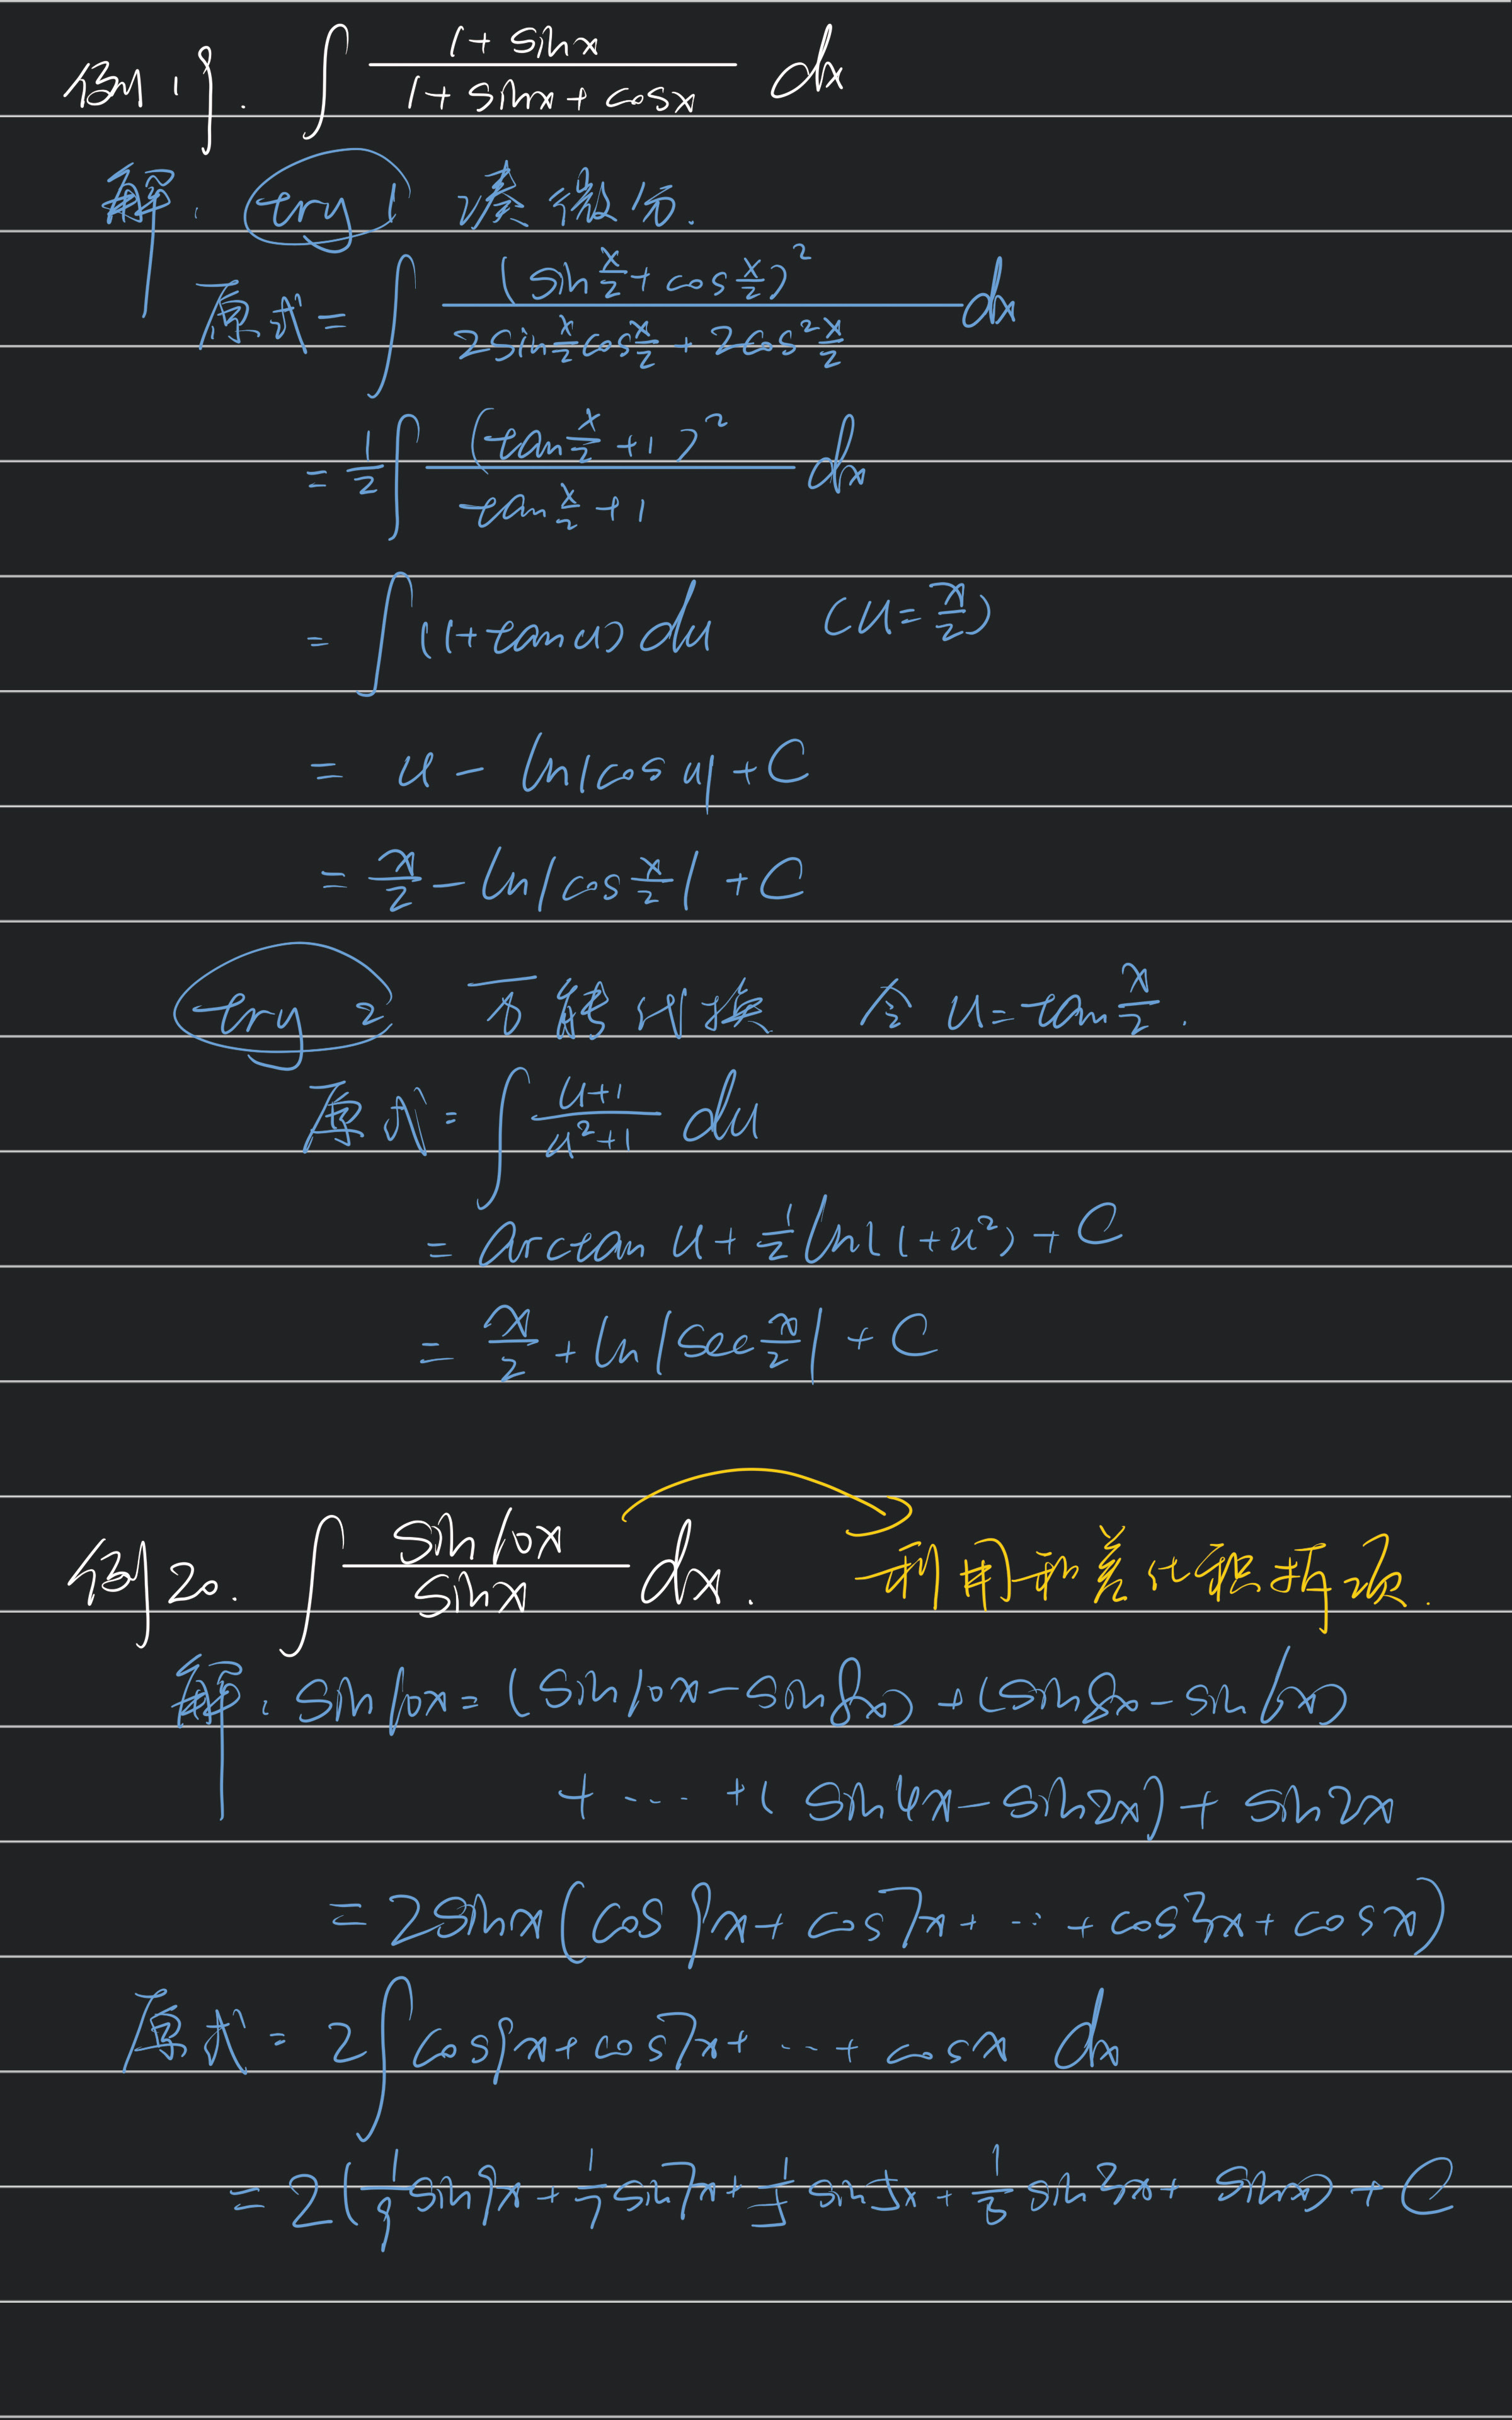 例19. ∫ (1+sinx)/(1+sinx+cosx) dx
解: try 1 凑微分.
原式= ∫ (sin x/2 + cos x/2)² / (2sin x/2 cos x/2 + 2cos² x/2) dx
= 1/2 ∫ (tan x/2 + 1)² / (tan x/2 + 1) dx
= ∫ (1+tan u) du (u= x/2)
= u - ln|cos u| + C
= x/2 - ln|cos x/2| + C
try 2 万能代换 令 u=tan x/2.
原式= ∫ (u+1)/(u²+1) du
= arctan u + 1/2 ln(1+u²) + C
= x/2 + ln|sec x/2| + C
例20. ∫ sin10x/sinx dx. 利用和差化积拆项.
解: sin10x = (sin10x-sin8x) + (sin8x-sin6x)
+ ... + (sin4x-sin2x) + sin2x
= 2sinx(cos9x+cos7x+ ... +cos3x+cosx)
原式= 2∫ cos9x+cos7x+ ... + cosx dx
= 2(1/9 sin9x + 1/7 sin7x + 1/5 sin5x + 1/3 sin3x + sinx) + C